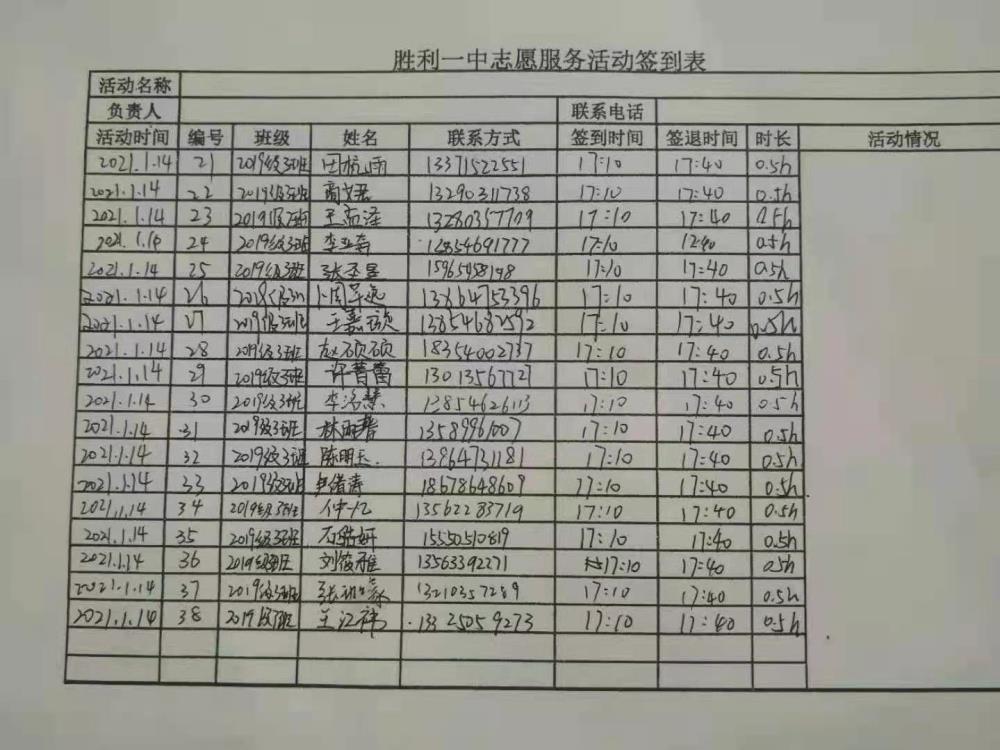 胜利一中志愿服务活动签到表
活动名称
负责人 联系电话
活动时间 编号 班级 姓名 联系方式 签到时间 签退时间 时长 活动情况
2021.1.14 21 2019级3班 13371522551 17:10 17:40 0.5h
2021.1.14 22 2019级3班 商文君 13290311738 17:10 17:40 0.5h
2021.1.14 23 2019级 王孟泽 13280357709 17:10 17:40 0.5h
2021.1.14 24 2019级3班 17:10 0.5h
2021.1.14 25 2019级3班 17:10 17:40 0.5h
2021.1.14 26 13864753396 17:10 17:40 0.5h
2021.1.14 27 2019级3班 王嘉祯 13854682592 17:10 17:40 0.5h
2021.1.14 28 2019级3班 赵硕硕 18354002737 17:10 17:40 0.5h
2021.1.14 29 2019级3班 许蕾蕾 13013567727 17:10 17:40 0.5h
2021.1.14 30 2019级3班 李洛慧 13854626113 17:10 17:40 0.5h
2021.1.14 31 2019级3班 13589961007 17:10 17:40 0.5h
2021.1.14 32 2019级3班 陈明玉 13964731181 17:10 17:40 0.5h
2021.1.14 33 2019级3班 18678648609 17:10 17:40 0.5h
2021.1.14 34 2019级3班 仲一亿 13562283719 17:10 17:40 0.5h
2021.1.14 35 2019级3班 15550510819 17:10 17:40 0.5h
2021.1.14 36 2019级 刘筱雅 13563392271 17:10 17:40 0.5h
2021.1.14 37 2019级3班 13210357289 17:10 17:40 0.5h
2021.1.14 38 2019级 王江祎 13325059273 17:10 17:40 0.5h